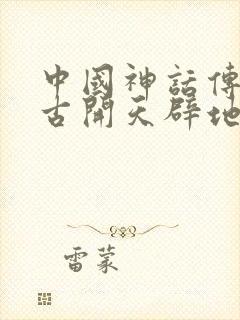 中國神話傳
古開天辟地
雷蒙